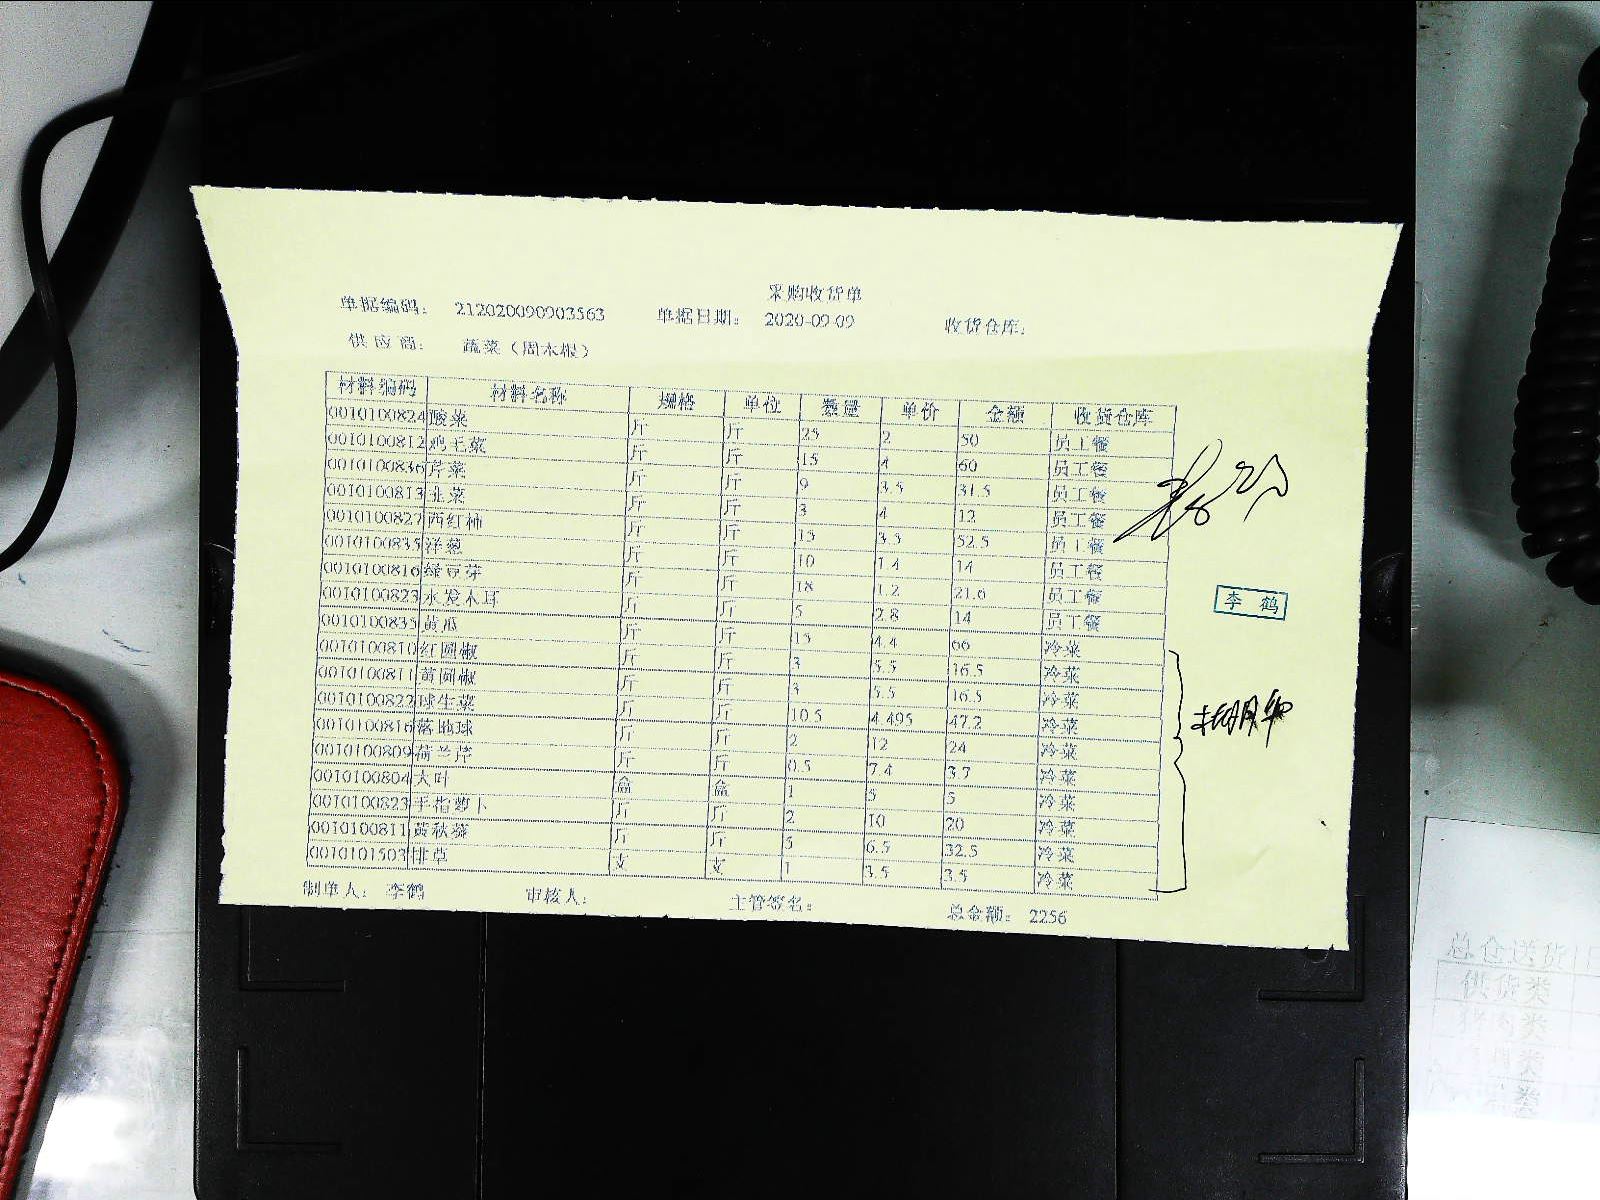 采购收货单
单据编码： 212020090903563 单据日期： 2020-09-09 收货仓库：
供应商： 蔬菜（周木根）
材料编码 材料名称 规格 单位 数量 单价 金额 收货仓库
0010100824 酸菜 斤 斤 25 2 50 员工餐
0010100812 鸡毛菜 斤 斤 15 4 60 员工餐
0010100836 芹菜 斤 斤 9 3.5 31.5 员工餐
0010100813 韭菜 斤 斤 3 4 12 员工餐
0010100827 西红柿 斤 斤 15 3.5 52.5 员工餐
0010100835 洋葱 斤 斤 10 1.4 14 员工餐
0010100816 绿豆芽 斤 斤 18 1.2 21.6 员工餐
0010100823 水发木耳 斤 斤 5 2.8 14 员工餐
0010100835 黄瓜 斤 斤 15 4.4 66 冷菜
0010100810 红圆椒 斤 斤 3 5.5 16.5 冷菜
0010100811 黄圆椒 斤 斤 3 5.5 16.5 冷菜
0010100822 球生菜 斤 斤 10.5 4.495 47.2 冷菜
0010100816 落地球 斤 斤 2 12 24 冷菜
0010100809 荷兰芹 斤 斤 0.5 7.4 3.7 冷菜
0010100804 大叶 盒 盒 1 5 5 冷菜
0010100823 手指萝卜 斤 斤 2 10 20 冷菜
0010100811 黄秋葵 斤 斤 5 6.5 32.5 冷菜
0010101503 排草 支 支 1 3.5 3.5 冷菜
制单人： 李鹤 审核人： 主管签名： 总金额： 2256
李鹤
总仓送货
供货类
猪肉类